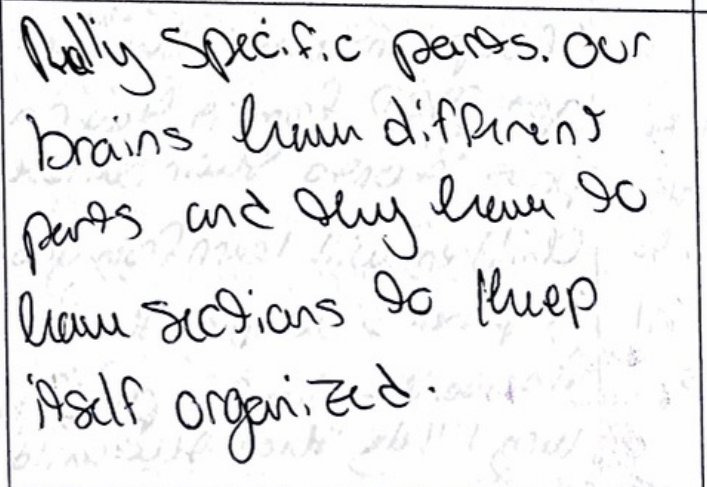 Really specific parts. Our
brains have different
parts and they have to
have sections to keep
itself organized.